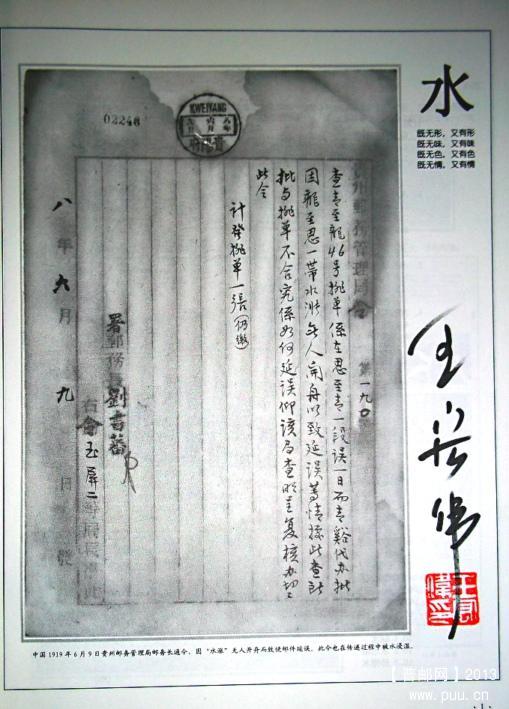 水
既无形，又有形
既无味，又有味
既无色，又有色
既无情，又有情
02248
KWEIYANG
州郵務管理局令 第一九〇
查青至龍46号排单係在忍至青一段误一日而青谿代办批
因龍至忍一帶水漲無人開舟以致延误等情據此查所
批与排单不合究係如何延误仰该局查明呈复核办切切
此令
计發排单一張(仍缴)
署郵務長劉書蕃
右令玉屏二等局長
八年六月九日發
中国1919年6月9日贵州邮务管理局邮务长通令，因"水涨"无人开舟而致使邮件延误。此令也在传递过程中被水浸湿。
【言邮网】2013
www.puu.cn